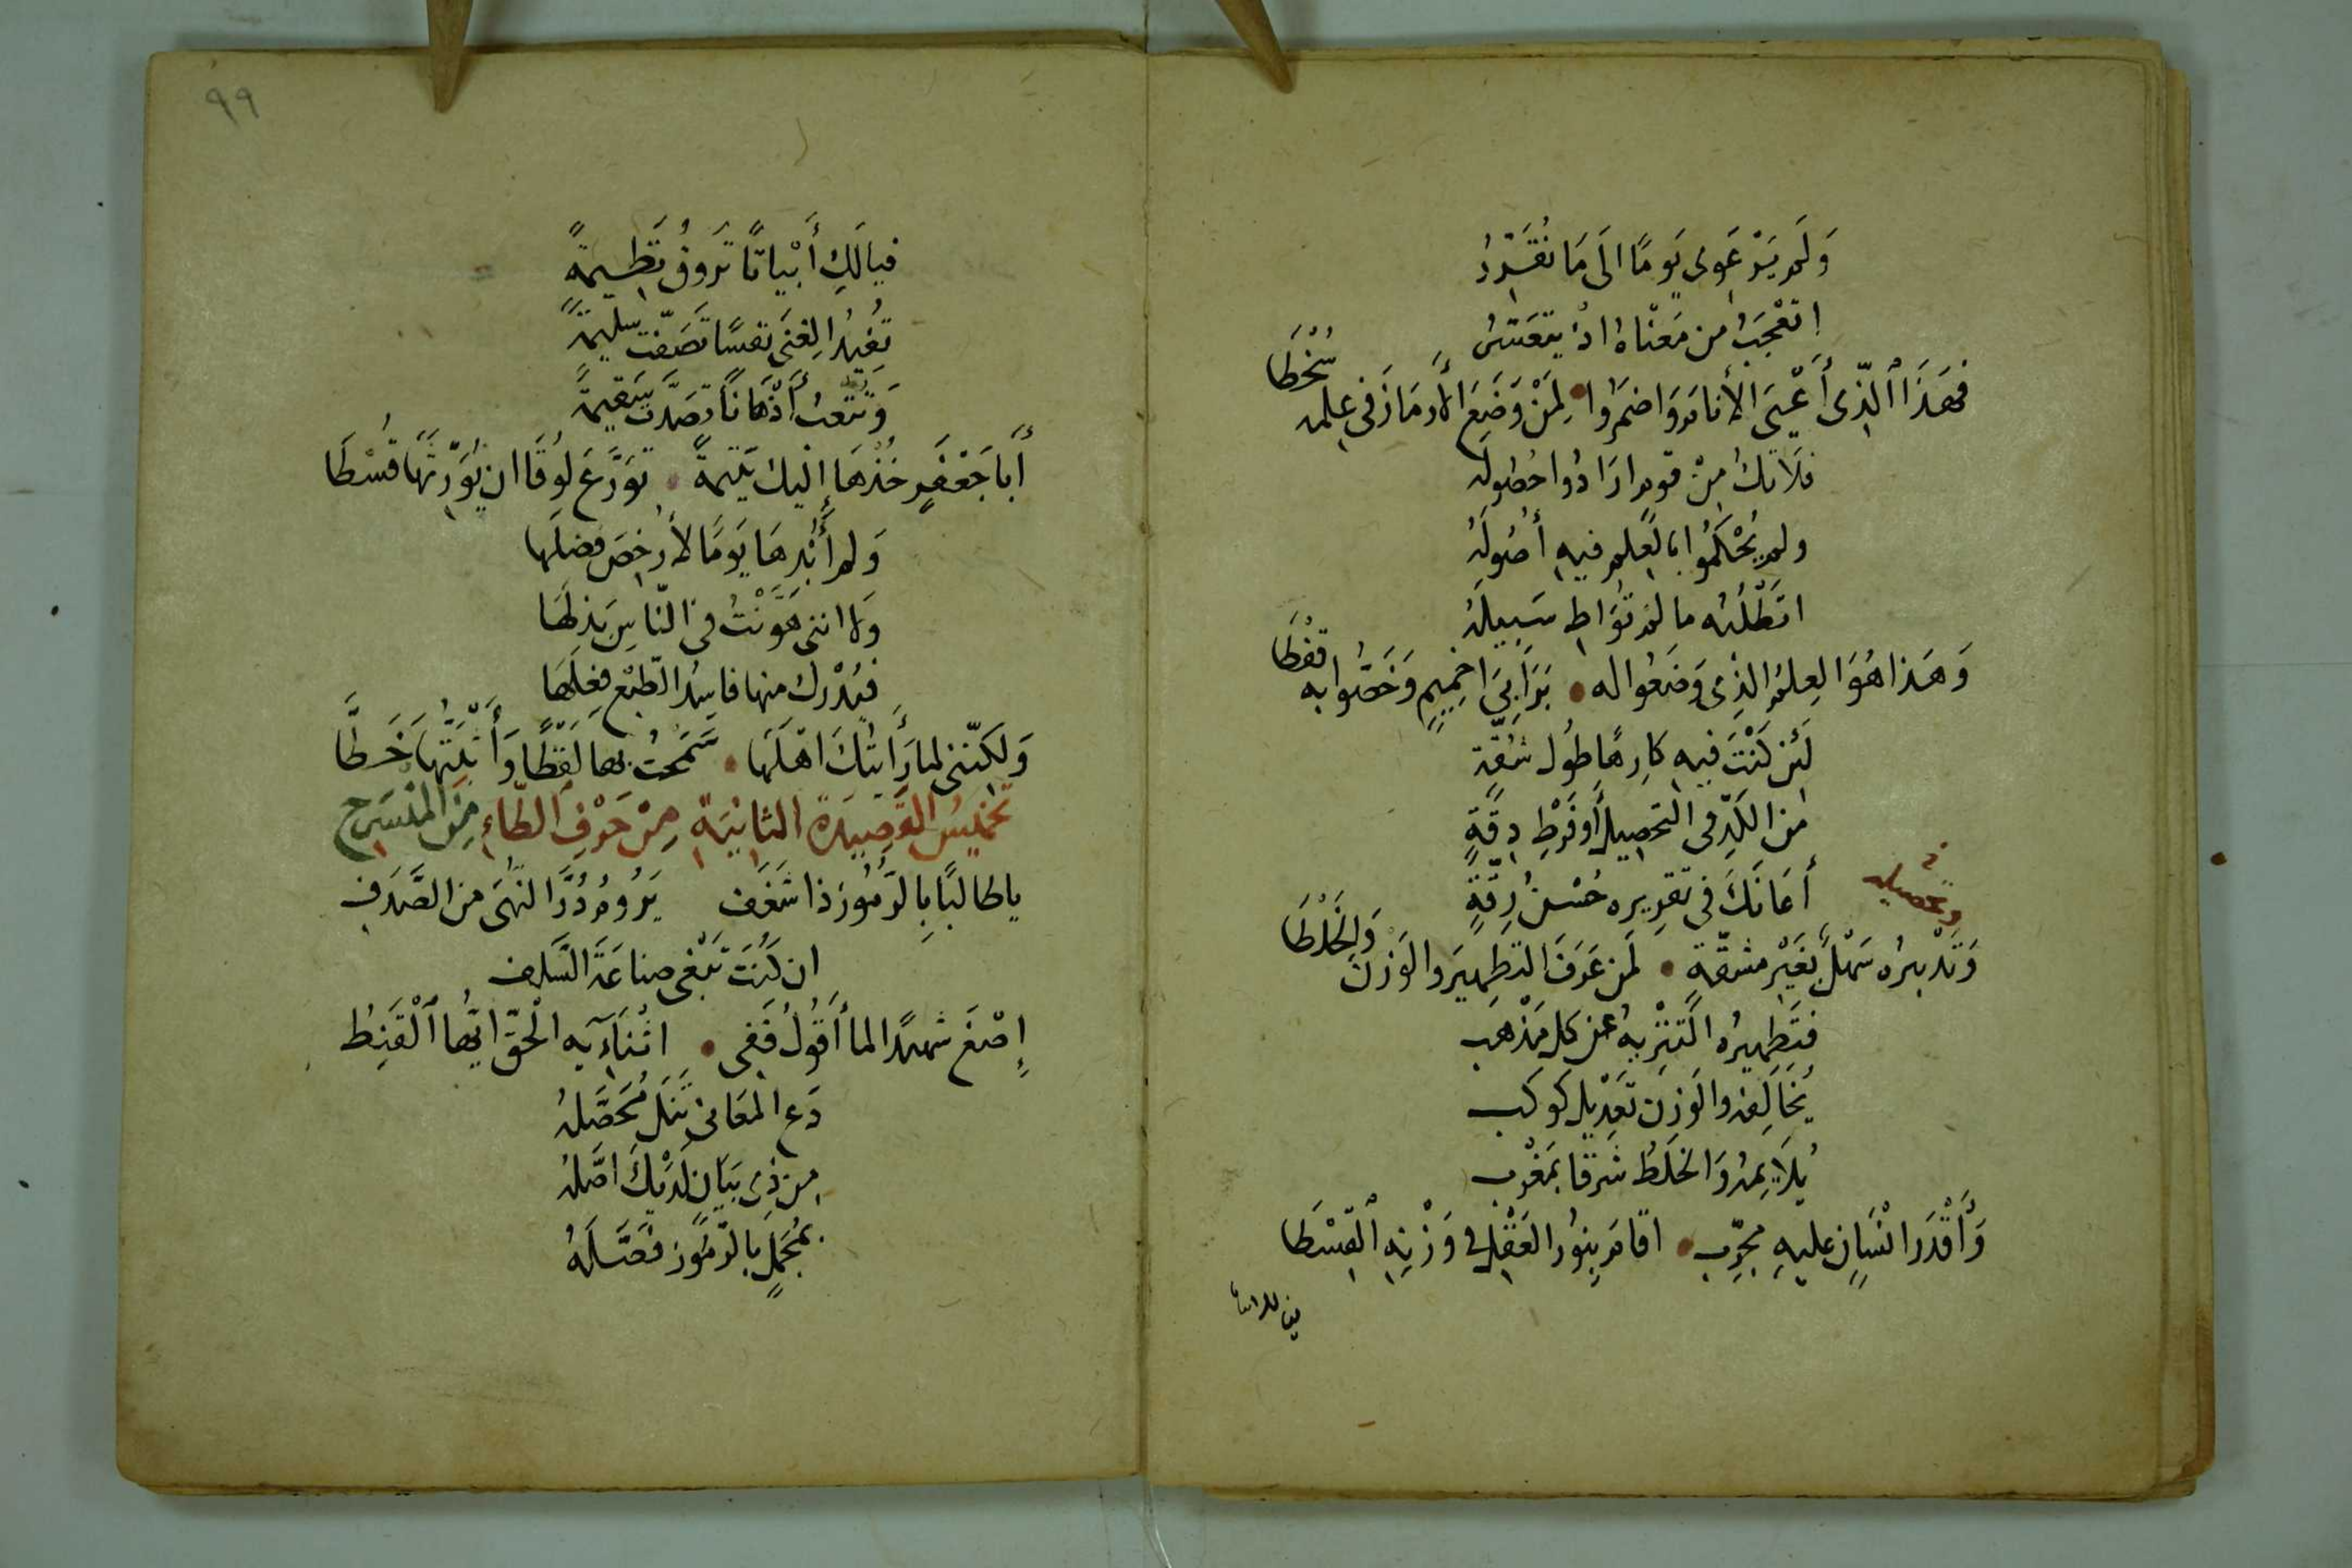 وَلَم يَرْعَوى يَومًا الَى مَا نُقَرِّرُ
فهَذَا الَّذِى أَعْيَى الأنامَ وَاضمَرُوا • لِمَنْ وَضَعَ الأرمَازَ فى علمه سُخْطَا
فلا تكُ مِنْ قومٍ ارَادُوا حُصُولَه
ولم يُحْكمُوا بالعِلمِ فيهِ أُصُولَهُ
مالم تُوَاطِ سَبِيلَهُ
وَهَذا هُوَ العِلمُ الذِى وَضَعُوا له • بَرَابِىَ اخْمِيمٍ وَخَصُّوا به قفْطَا
لَئن كُنْتَ فيهِ كارِهًا طُولَ شُقَّة
مِن الكَدِّ فى التحصيل أَو فَرْطِ دِقَّةٍ
أعَانَكَ فى تقريرِه حُسْنُ رِقَّةٍ
وتحصيله
وَتَدْبيرُه سَهْلٌ بغَيْرِ مشقّةٍ • لمَن عَرَفَ التطهِيرَ والوَزنَ وَالخَلْطَا
فتَطهِيرُه التَنْزِيهُ عن كل مَذْهَب
يُخَالِفه والوَزن تعَدْيل كَوكَب
يُلائِمهُ وَالخلط شَرقًا بمَغْرب
وَأَقْدَر انْسَانٍ عليهِ مجَرِّبٍ • اقامَ بِنوُر العَقْل فى وَزْنِهِ القِسْطَا
٩٩
فيا لَكِ أَبْيَاتًا تَروقُ نَظِيمةً
تُفِيدُ الغِنَى نفسًا تَصَفَّت سليمةً
وَتُتعبُ أَذْهَانًا تصَدَّت سَقيمَةً
أَبا جَعْفَرٍ خُذْهَا إليك يَتيمَةً • تَوَرَّعَ لوُقَا ان يُوَرِّثهَا قُسْطَا
وَلم أُبْدِهَا يَومًا لأُرخِصَ فضلَها
وَلا اننى هَوَّنْتُ فى النّاسِ بَذلَهَا
فيُدْرك منها فاسِدُ الطّبْعِ فِعْلَهَا
وَلَكنّنى لمّا رَأَيْتُكَ اهْلَهَا • سَمَحْتُ بها لَفظًا وَأَثْبَتُّهَا خَطَّا
تخميسُ القصِيدَة الثانيَةِ مِنْ حَرْفِ الطّاءِ مِن المُنسَرِح
يا طالبًا بِالرّمُوزِ ذا شغَفِ يَرُومُ دُرَّ النُّهَى من الصَّدَفِ
ان كُنتَ تَبْغى صناعَةَ السَّلفِ
إِصْغَ شهيدًا لما أَقُولُ فَفِى • اثْنَاءِيهِ الْحَقّ ايُّها الْقَنِطُ
دَع المَعَانى تَنَل مُحَصَّلهُ
مِن ذِى بيَانٍ لَدَيْكَ اصَّلهُ
بمُجْمَلٍ بالرّمُوزِ فَصَّلَهُ